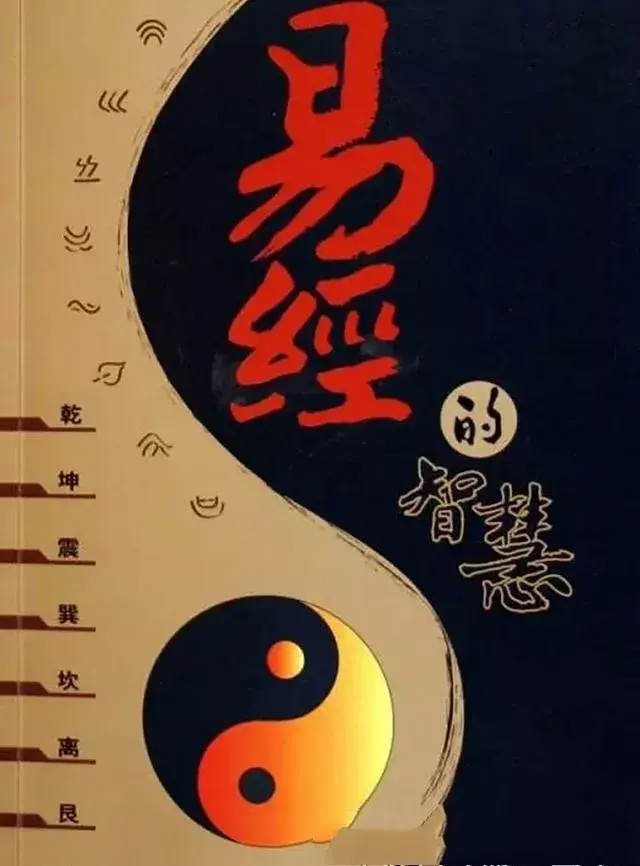 易經
的
智慧
乾
坤
震
巽
坎
离
艮